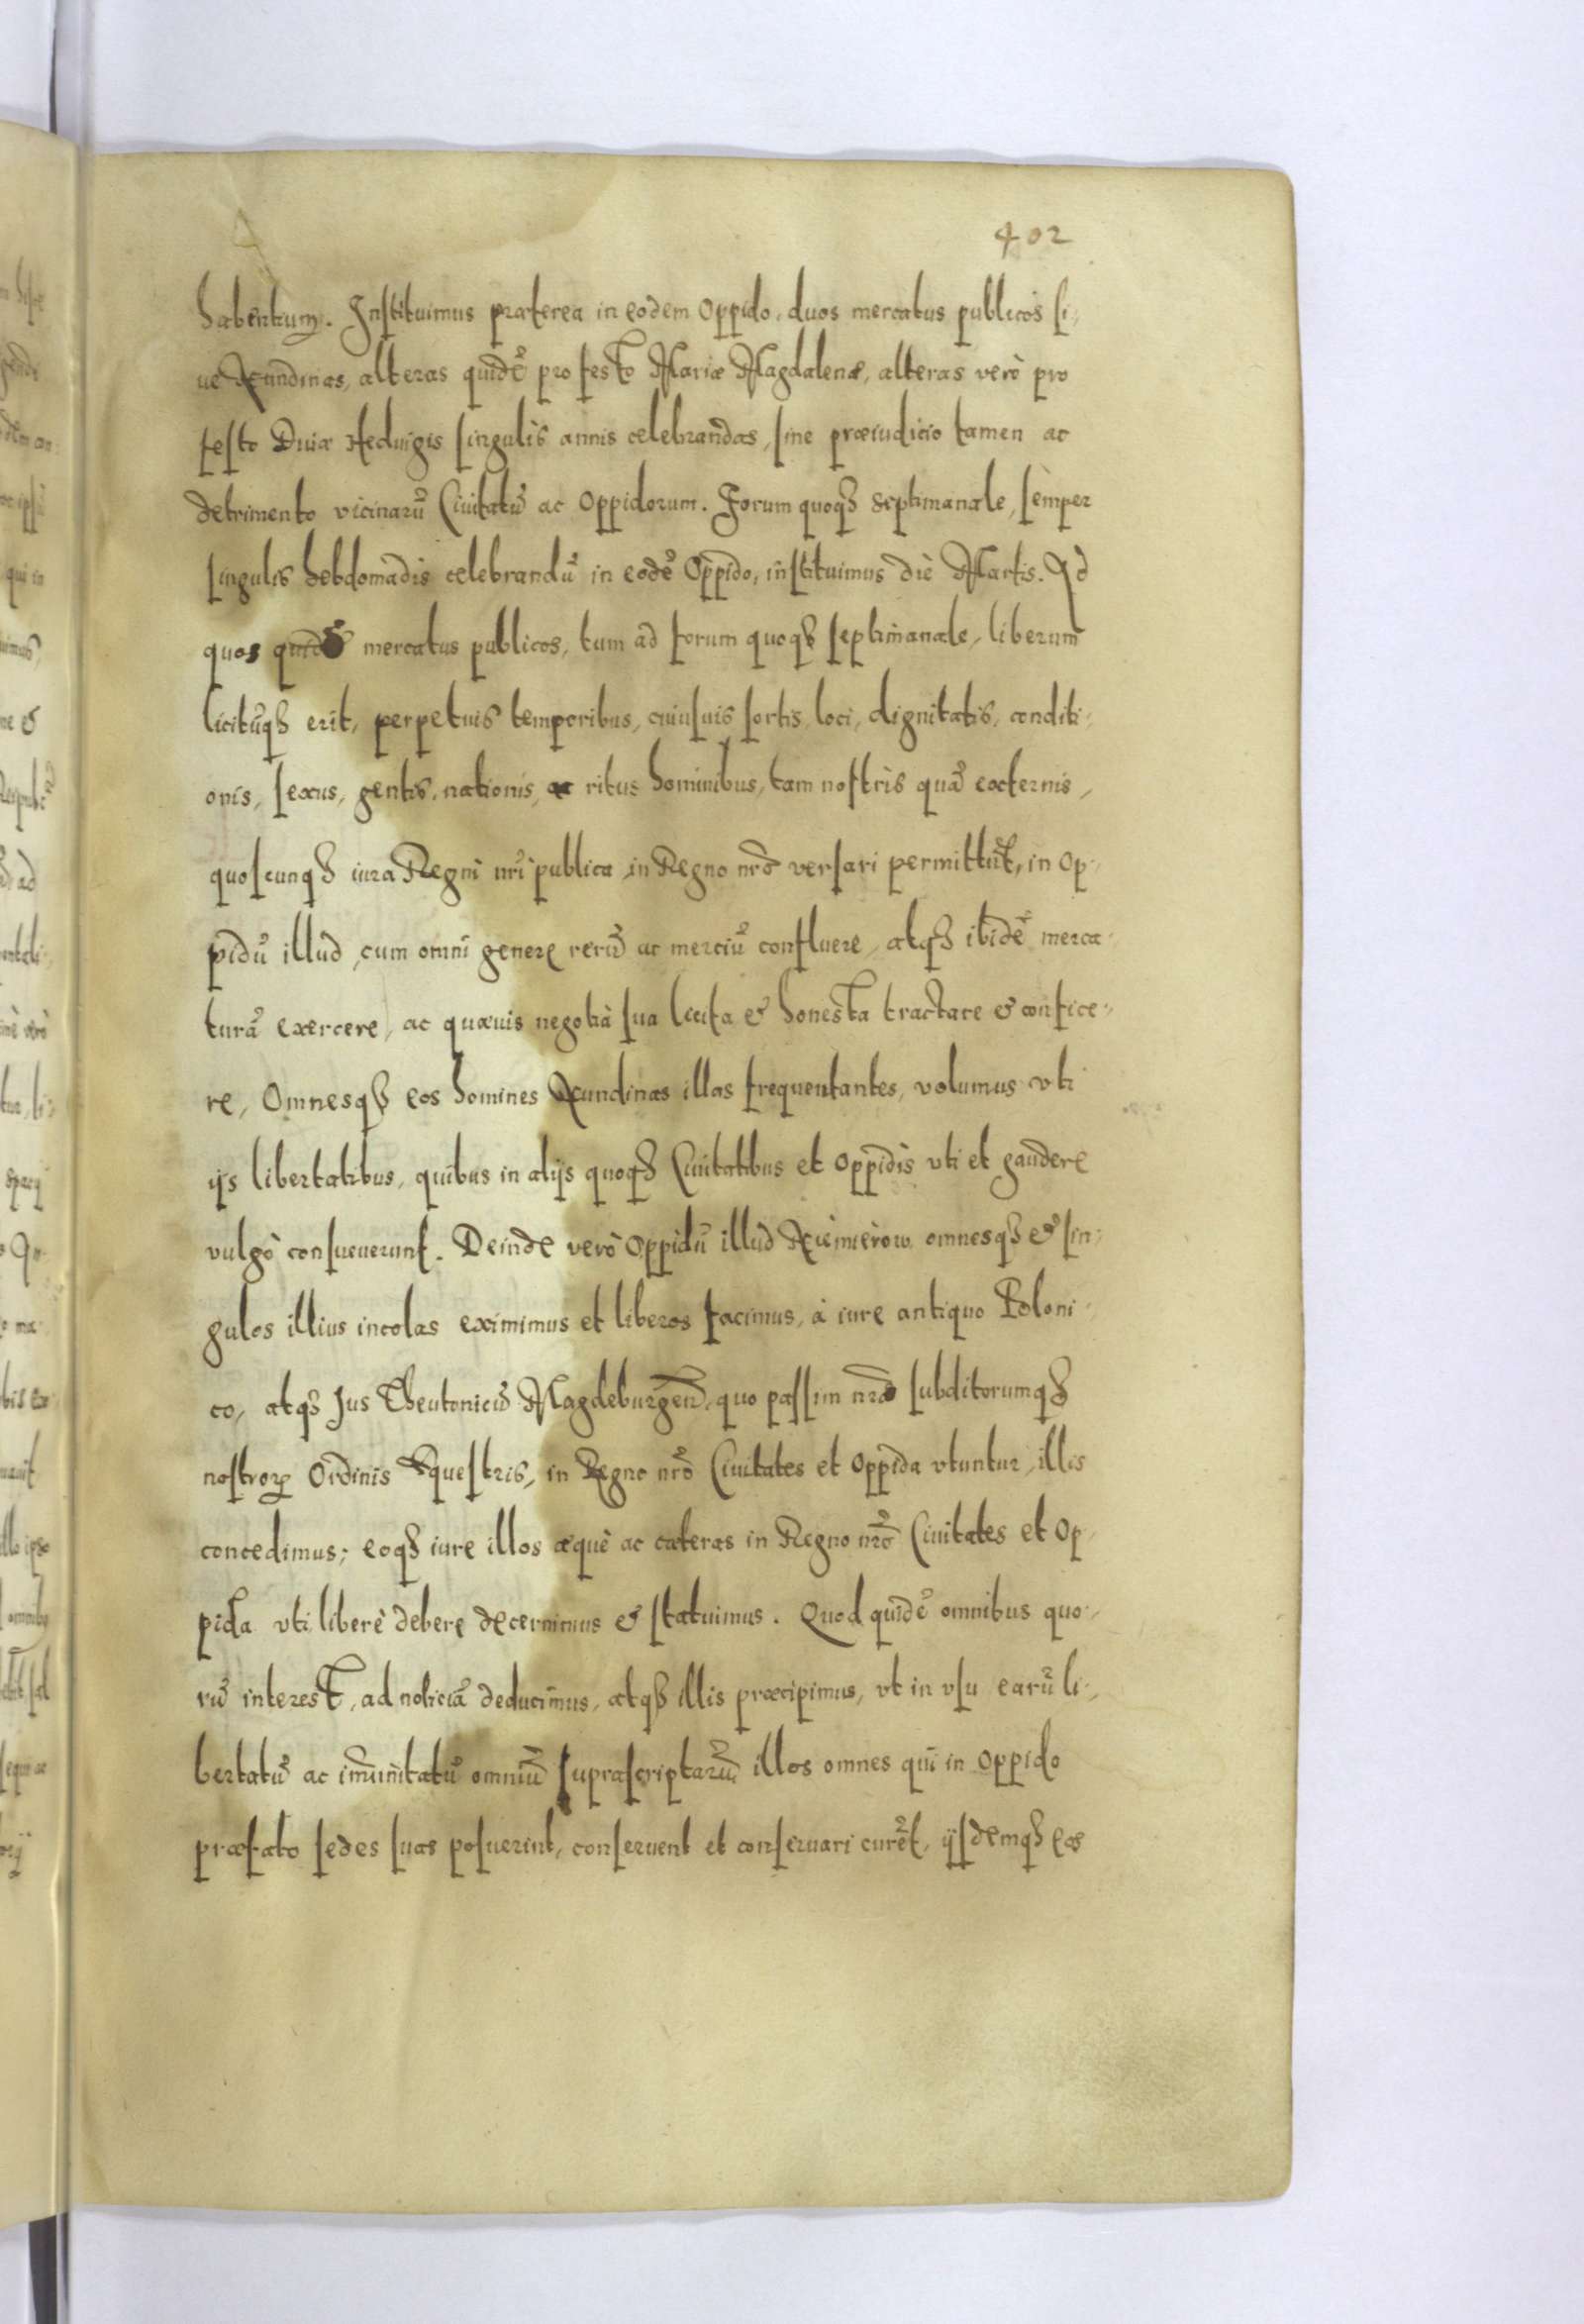 402
habentium. Instituimus præterea in eodem Oppido, duos mercatus publicos si-
ue Nundinas, alteras quidẽ pro festo Mariæ Magdalenæ, alteras verò pro
festo Diuæ Heduigis singulis annis celebrandas, sine præiudicio tamen ac
detrimento vicinarũ Ciuitatũ ac Oppidorum. Forum quoqȝ septimanale, semper
singulis hebdomadis celebrandũ in eodẽ Oppido, instituimus die Martis. Ad
quos mercatus publicos, tum ad forum quoqȝ septimanale, liberum
licitũqȝ erit, perpetuis temporibus, cuiusuis sortis, loci, dignitatis, conditi-
onis, sexus, gentis, nationis, ac ritus hominibus, tam nostris quã externis,
quoscunqȝ iura Regni nr̃i publica in Regno nr̃o versari permittũt, in Op-
pidũ illud, cum omni genere rerũ ac merciũ confluere, atqȝ ibidẽ merca-
turã exercere, ac quæuis negotia sua licita & honesta tractare & confice-
re, Omnesqȝ eos homines Nundinas illas frequentantes, volumus vti
ijs libertatibus, quibus in alijs quoqȝ Ciuitatibus et Oppidis vti et gaudere
vulgò consueuerunt. Deinde verò Oppidũ illud Niemierow omnesqȝ & sin-
gulos illius incolas eximimus et liberos facimus, à iure antiquo Poloni-
co, atqȝ Jus Theutonicũ Magdeburgeñ, quo passim nr̃æ subditorumqȝ
nostroꝝ Ordinis Equestris, in Regno nr̃o Ciuitates et Oppida vtuntur, illis
concedimus; eoqȝ iure illos æquè ac cæteras in Regno nr̃o Ciuitates et Op-
pida vti liberè debere decernimus & statuimus. Quod quidẽ omnibus quo-
rũ interest, ad noticiã deducimus, atqȝ illis præcipimus, vt in vsu earũ li-
bertatũ ac im̃unitatũ omniũ suprascriptarũ, illos omnes qui in Oppido
præfato sedes suas posuerint, conseruent et conseruari curẽt, ijsdemqȝ eos